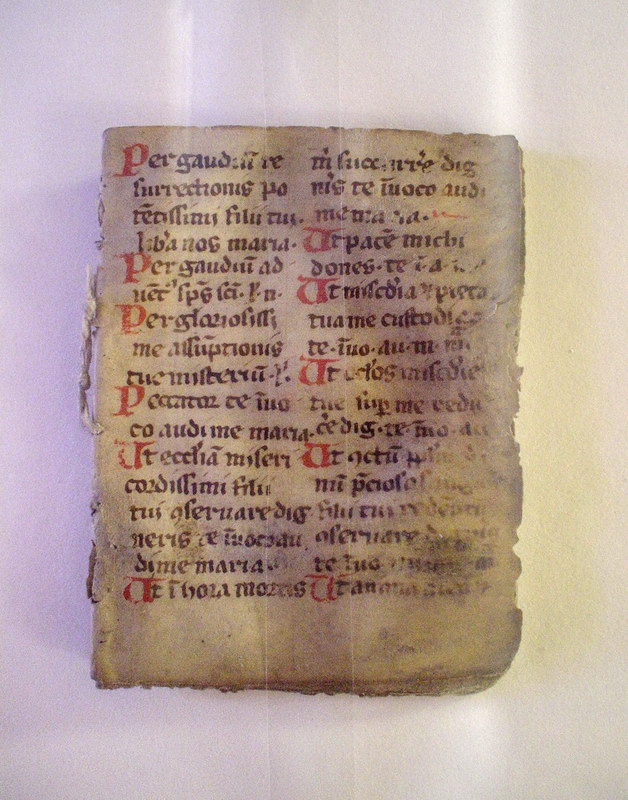 Per gaudiū re
surrectionis po
tētissimi filii tui.
lib'a nos maria.
Per gaudiū ad
uēt' sp̄s sc̄i. l'. n.
Per gloriosissi
me assūptionis
tue misteriū. l'.
Peccator te īuo
co audi me maria.
Ut eccl'iam miseri
cordissimi filii
tui ꝯseruare dig
neris te īuoco au
di me maria
Ut ī hora mortis
m̄ succurr'e dig
n'is te īuoco audi
me maria.
Ut pacē michi
dones. te ī. a.
Ut mis'cdia & pieta
tua me custodi
te. īuo. au. m.
Ut oc'los mis'cdie
tue sup me redu
c'e dig. te. īuo. au
Ut ꝯctū
nū p̄cioso
filii tui redēpti
ꝯseruare
te īuo
Ut